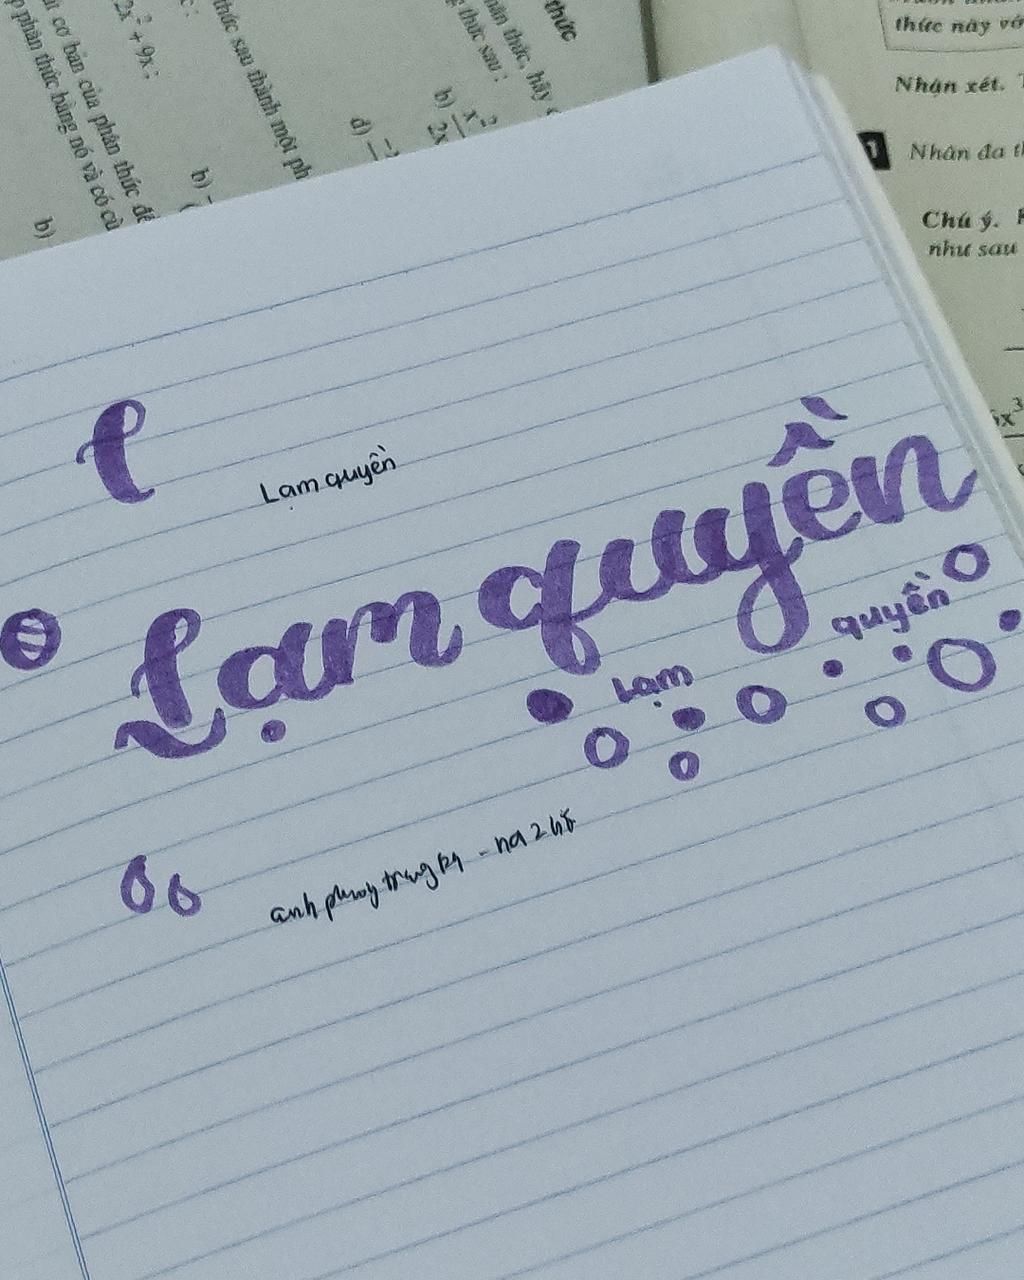 thức
hân thức, hãy
g thức sau :
b) x²
2x
d) -2
thức sau thành một ph
b)
2x² + 9x ;
ơ bản của phân thức để
p phân thức bằng nó và có cù
b)
thức này vớ
Nhận xét.
1 Nhân đa th
Chú ý.
như sau
x³
l
Lạm quyền
Lạm quyền
Lạm quyền
anh